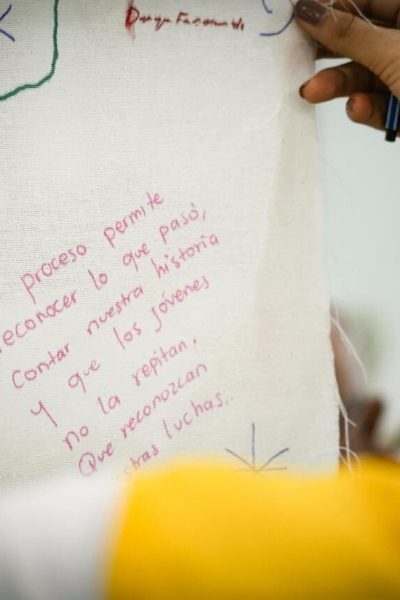 proceso permite
reconocer lo que pasó,
contar nuestra historia
y que los jóvenes
no la repitan.
Que reconozcan
luchas..